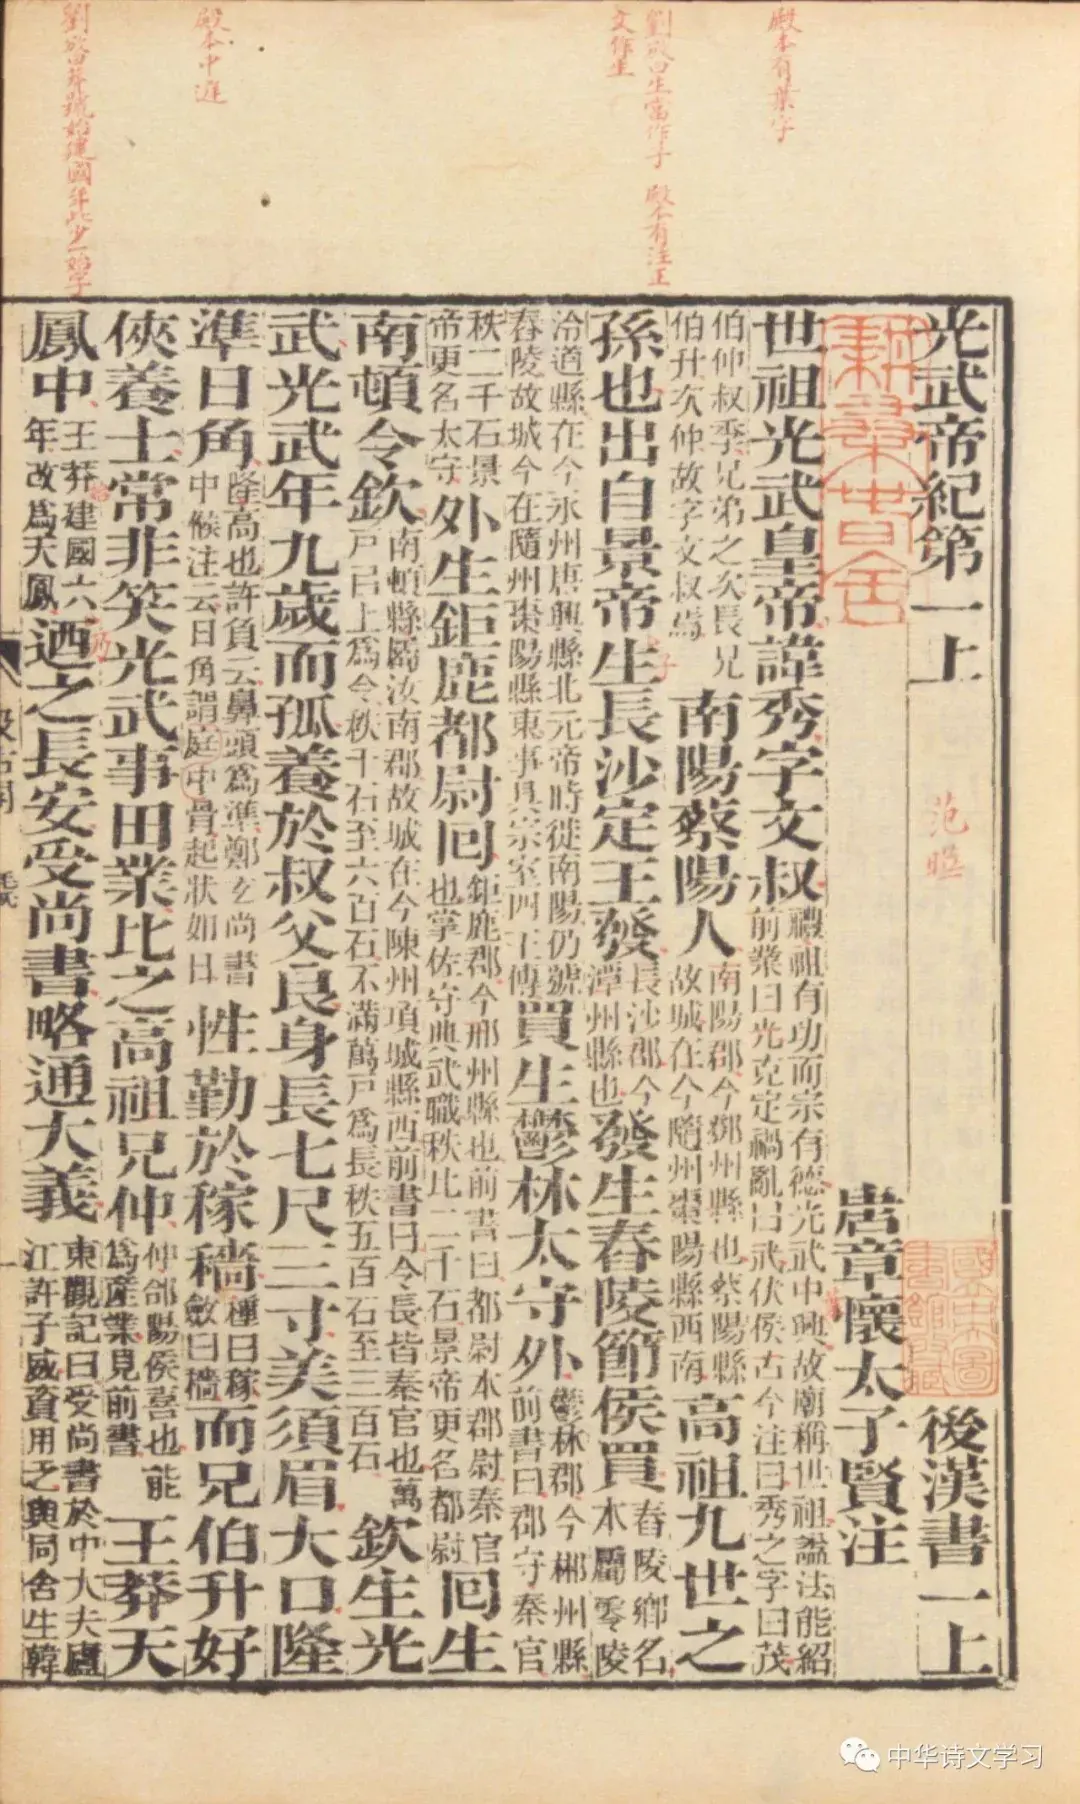 殿本有葉字
劉攽曰生當作子 殿本有注正
文作生
殿本中
劉攽曰莽號始建國年此少一始字
光武帝紀第一上 後漢書一上
范曄
唐章懷太子賢注
世祖光武皇帝諱秀字文叔禮祖有功而宗有德光武中興故廟稱世祖諡法能紹前業曰光克定禍亂曰武伏侯古今注曰秀之字曰茂
伯仲叔季兄弟之次長兄伯升次仲故字文叔焉南陽蔡陽人南陽郡今鄧州縣也蔡陽縣故城在今隨州棗陽縣西南高祖九世之
孫也出自景帝生長沙定王發長沙郡今潭州縣也發生舂陵節侯買舂陵鄉名本屬零陵
泠道縣在今永州唐興縣北元帝時徙南陽仍號舂陵故城今在隨州棗陽縣東事具宗室四王傳買生鬱林太守外鬱林郡今郴州縣前書曰郡守秦官
秩二千石景帝更名太守外生鉅鹿都尉回鉅鹿郡今邢州縣也前書曰都尉本郡尉秦官也掌佐守典武職秩比二千石景帝更名都尉回生
南頓令欽南頓縣屬汝南郡故城在今陳州項城縣西前書曰令長皆秦官也萬戶已上爲令秩千石至六百石不滿萬戶爲長秩五百石至三百石欽生光
武光武年九歲而孤養於叔父良身長七尺三寸美須眉大口隆
準日角隆高也許負云鼻頭爲準鄭玄尚書中候注云日角謂庭中骨起狀如日性勤於稼穡種曰稼斂曰穡而兄伯升好
俠養士常非笑光武事田業比之高祖兄仲仲郃陽侯喜也能爲產業見前書王莽天
鳳中王莽建國六年改爲天鳳迺之長安受尚書略通大義東觀記曰受尚書於中大夫廬江許子威資用乏與同舍生韓
中华诗文学习